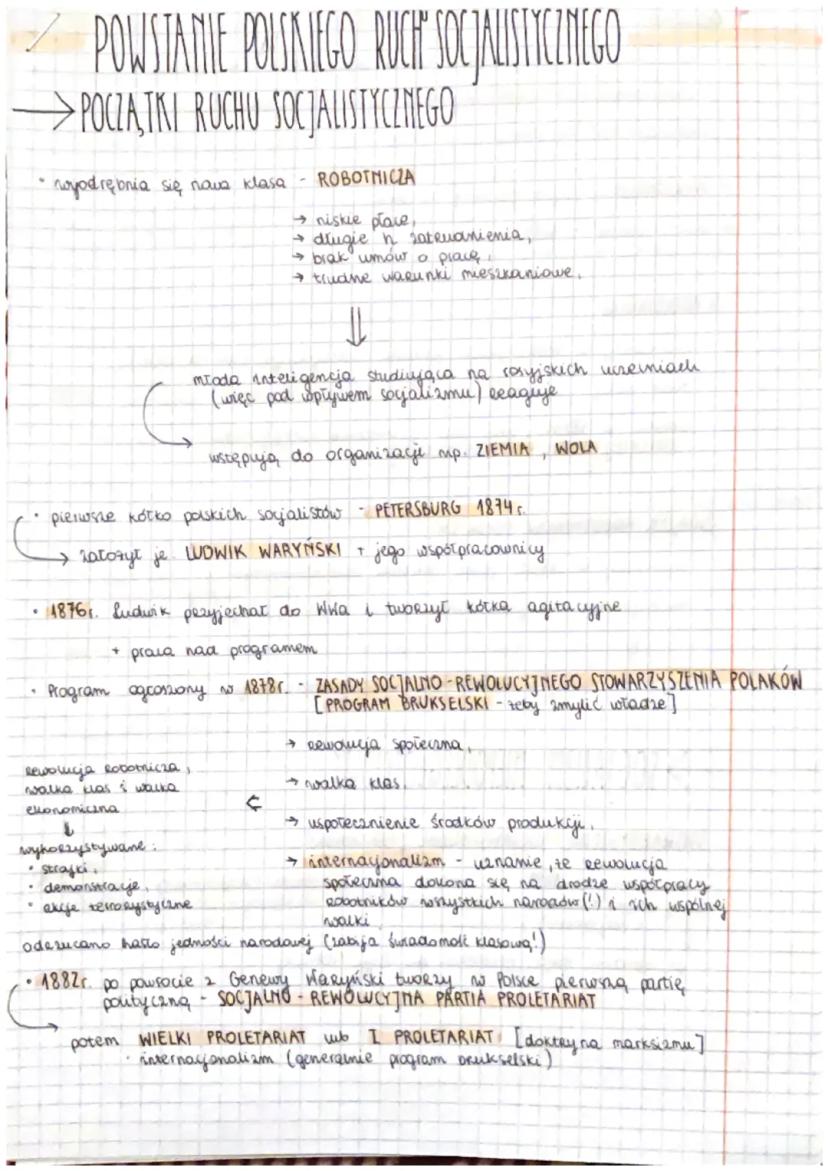 POWSTANIE POLSKIEGO RUCHU SOCJALISTYCZNEGO
→ POCZĄTKI RUCHU SOCJALISTYCZNEGO
• wyodrębnia się nowa klasa - ROBOTNICZA
→ niskie płace,
→ długie h zatrudnienia,
→ brak umów o pracę,
→ trudne warunki mieszkaniowe.
⇓
młoda inteligencja studiująca na rosyjskich uczelniach
(więc pod wpływem socjalizmu) reaguje
wstępują do organizacji np. ZIEMIA, WOLA
• pierwsze kółko polskich socjalistów - PETERSBURG 1874 r.
→ założył je LUDWIK WARYŃSKI + jego współpracownicy
• 1876r. Ludwik przyjechał do WWa i tworzył kółka agitacyjne
+ praca nad programem
• Program ogłoszony w 1878r. - ZASADY SOCJALNO-REWOLUCYJNEGO STOWARZYSZENIA POLAKÓW
[PROGRAM BRUKSELSKI - żeby zmylić władze]
→ rewolucja społeczna,
→ walka klas,
→ uspołecznienie środków produkcji,
→ internacjonalizm - uznanie, że rewolucja
społeczna dokona się na drodze współpracy
robotników wszystkich narodów (!) i ich wspólnej
walki
rewolucja robotnicza,
walka klas i walka
ekonomiczna
↓
wykorzystywane:
• strajki,
• demonstracje,
• akcje terrorystyczne
odrzucano hasło jedności narodowej (zabija świadomość klasową!)
• 1882r. po powrocie z Genewy Waryński tworzy w Polsce pierwszą partię
polityczną - SOCJALNO-REWOLUCYJNA PARTIA PROLETARIAT
potem WIELKI PROLETARIAT lub I PROLETARIAT [doktryna marksizmu]
• internacjonalizm (generalnie program brukselski)